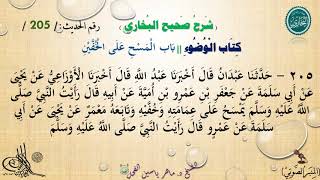 شَرْحُ صَحِيحِ البُخَارِي
رقم الحديث: / 205 /
كِتَابُ الْوُضُوءِ || بَابُ الْمَسْحِ عَلَى الْخُفَّيْنِ
٢٠٥ - حَدَّثَنَا عَبْدَانُ قَالَ أَخْبَرَنَا عَبْدُ اللَّهِ قَالَ أَخْبَرَنَا الْأَوْزَاعِيُّ عَنْ يَحْيَى
عَنْ أَبِي سَلَمَةَ عَنْ جَعْفَرِ بْنِ عَمْرِو بْنِ أُمَيَّةَ عَنْ أَبِيهِ قَالَ رَأَيْتُ النَّبِيَّ صَلَّى
اللَّهُ عَلَيْهِ وَسَلَّمَ يَمْسَحُ عَلَى عِمَامَتِهِ وَخُفَّيْهِ وَتَابَعَهُ مَعْمَرٌ عَنْ يَحْيَى عَنْ أَبِي
سَلَمَةَ عَنْ عَمْرٍو قَالَ رَأَيْتُ النَّبِيَّ صَلَّى اللَّهُ عَلَيْهِ وَسَلَّمَ
د. ماهر ياسين الفحل